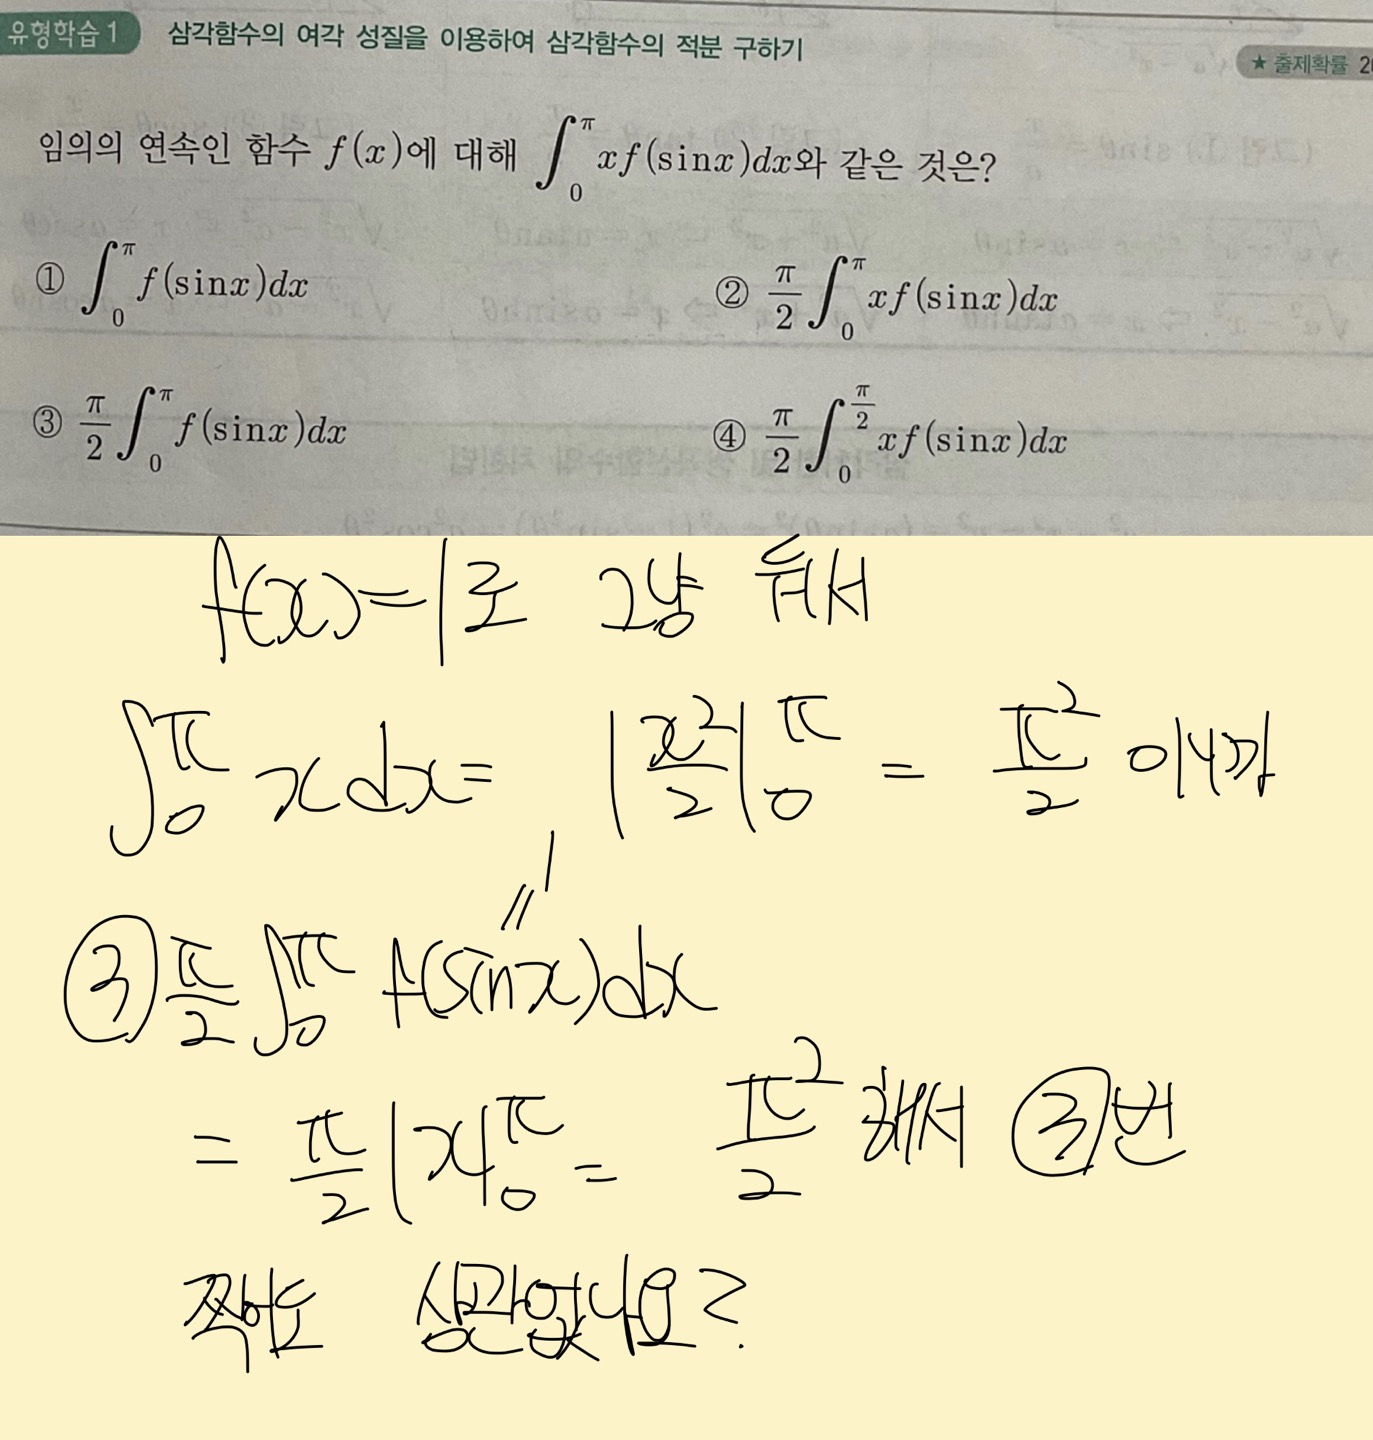 유형학습 1 삼각함수의 여각 성질을 이용하여 삼각함수의 적분 구하기
★ 출제확률 2
임의의 연속인 함수 f(x)에 대해 ∫_0^π xf(sinx)dx와 같은 것은?
① ∫_0^π f(sinx)dx ② π/2 ∫_0^π xf(sinx)dx
③ π/2 ∫_0^π f(sinx)dx ④ π/2 ∫_0^{π/2} xf(sinx)dx
f(x)=1로 그냥 둬서
∫_0^π x dx = |x²/2|_0^π = π²/2 이니깐
1
〃
③ π/2 ∫_0^π f(sinx)dx
= π/2 |x|_0^π = π²/2 해서 ③번
찍어도 상관없나요?